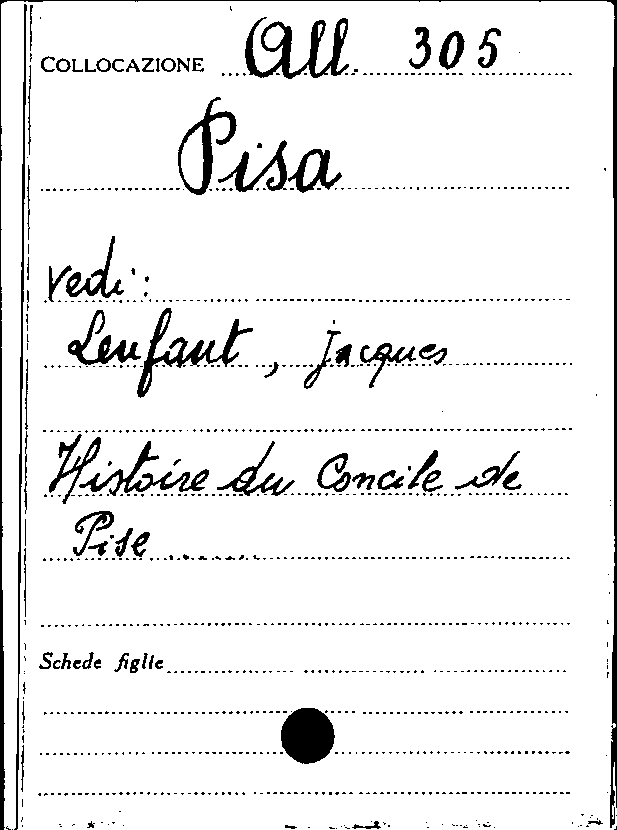 COLLOCAZIONE All. 305
Pisa
vedi:
Lenfant, Jacques
Histoire du Concile de
Pise .......
Schede figlie